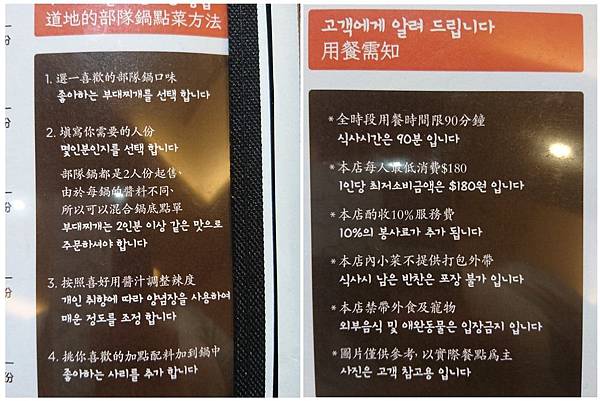 道地的部隊鍋點菜方法
1. 選一喜歡的部隊鍋口味
좋아하는 부대찌개를 선택 합니다
2. 填寫你需要的人份
몇인분인지를 선택 합니다
部隊鍋都是2人份起售,
由於每鍋的醬料不同、
所以可以混合鍋底點單
부대찌개는 2인분 이상 같은 맛으로
주문하셔야 합니다
3. 按照喜好用醬汁調整辣度
개인 취향에 따라 양념장을 사용하여
매운 정도를 조정 합니다
4. 挑你喜歡的加點配料加到鍋中
좋아하는 사리를 추가 합니다
份
份
고객에게 알려 드립니다
用餐需知
* 全時段用餐時間限90分鐘
식사시간은 90분 입니다
* 本店每人最低消費$180
1인당 최저소비금액은 $180원 입니다
* 本店酌收10%服務費
10%의 봉사료가 추가 됩니다
* 本店內小菜不提供打包外帶
식사시 남은 반찬은 포장 불가 입니다
* 本店禁帶外食及寵物
외부음식 및 애완동물은 입장금지 입니다
* 圖片僅供參考, 以實際餐點爲主
사진은 고객 참고용 입니다